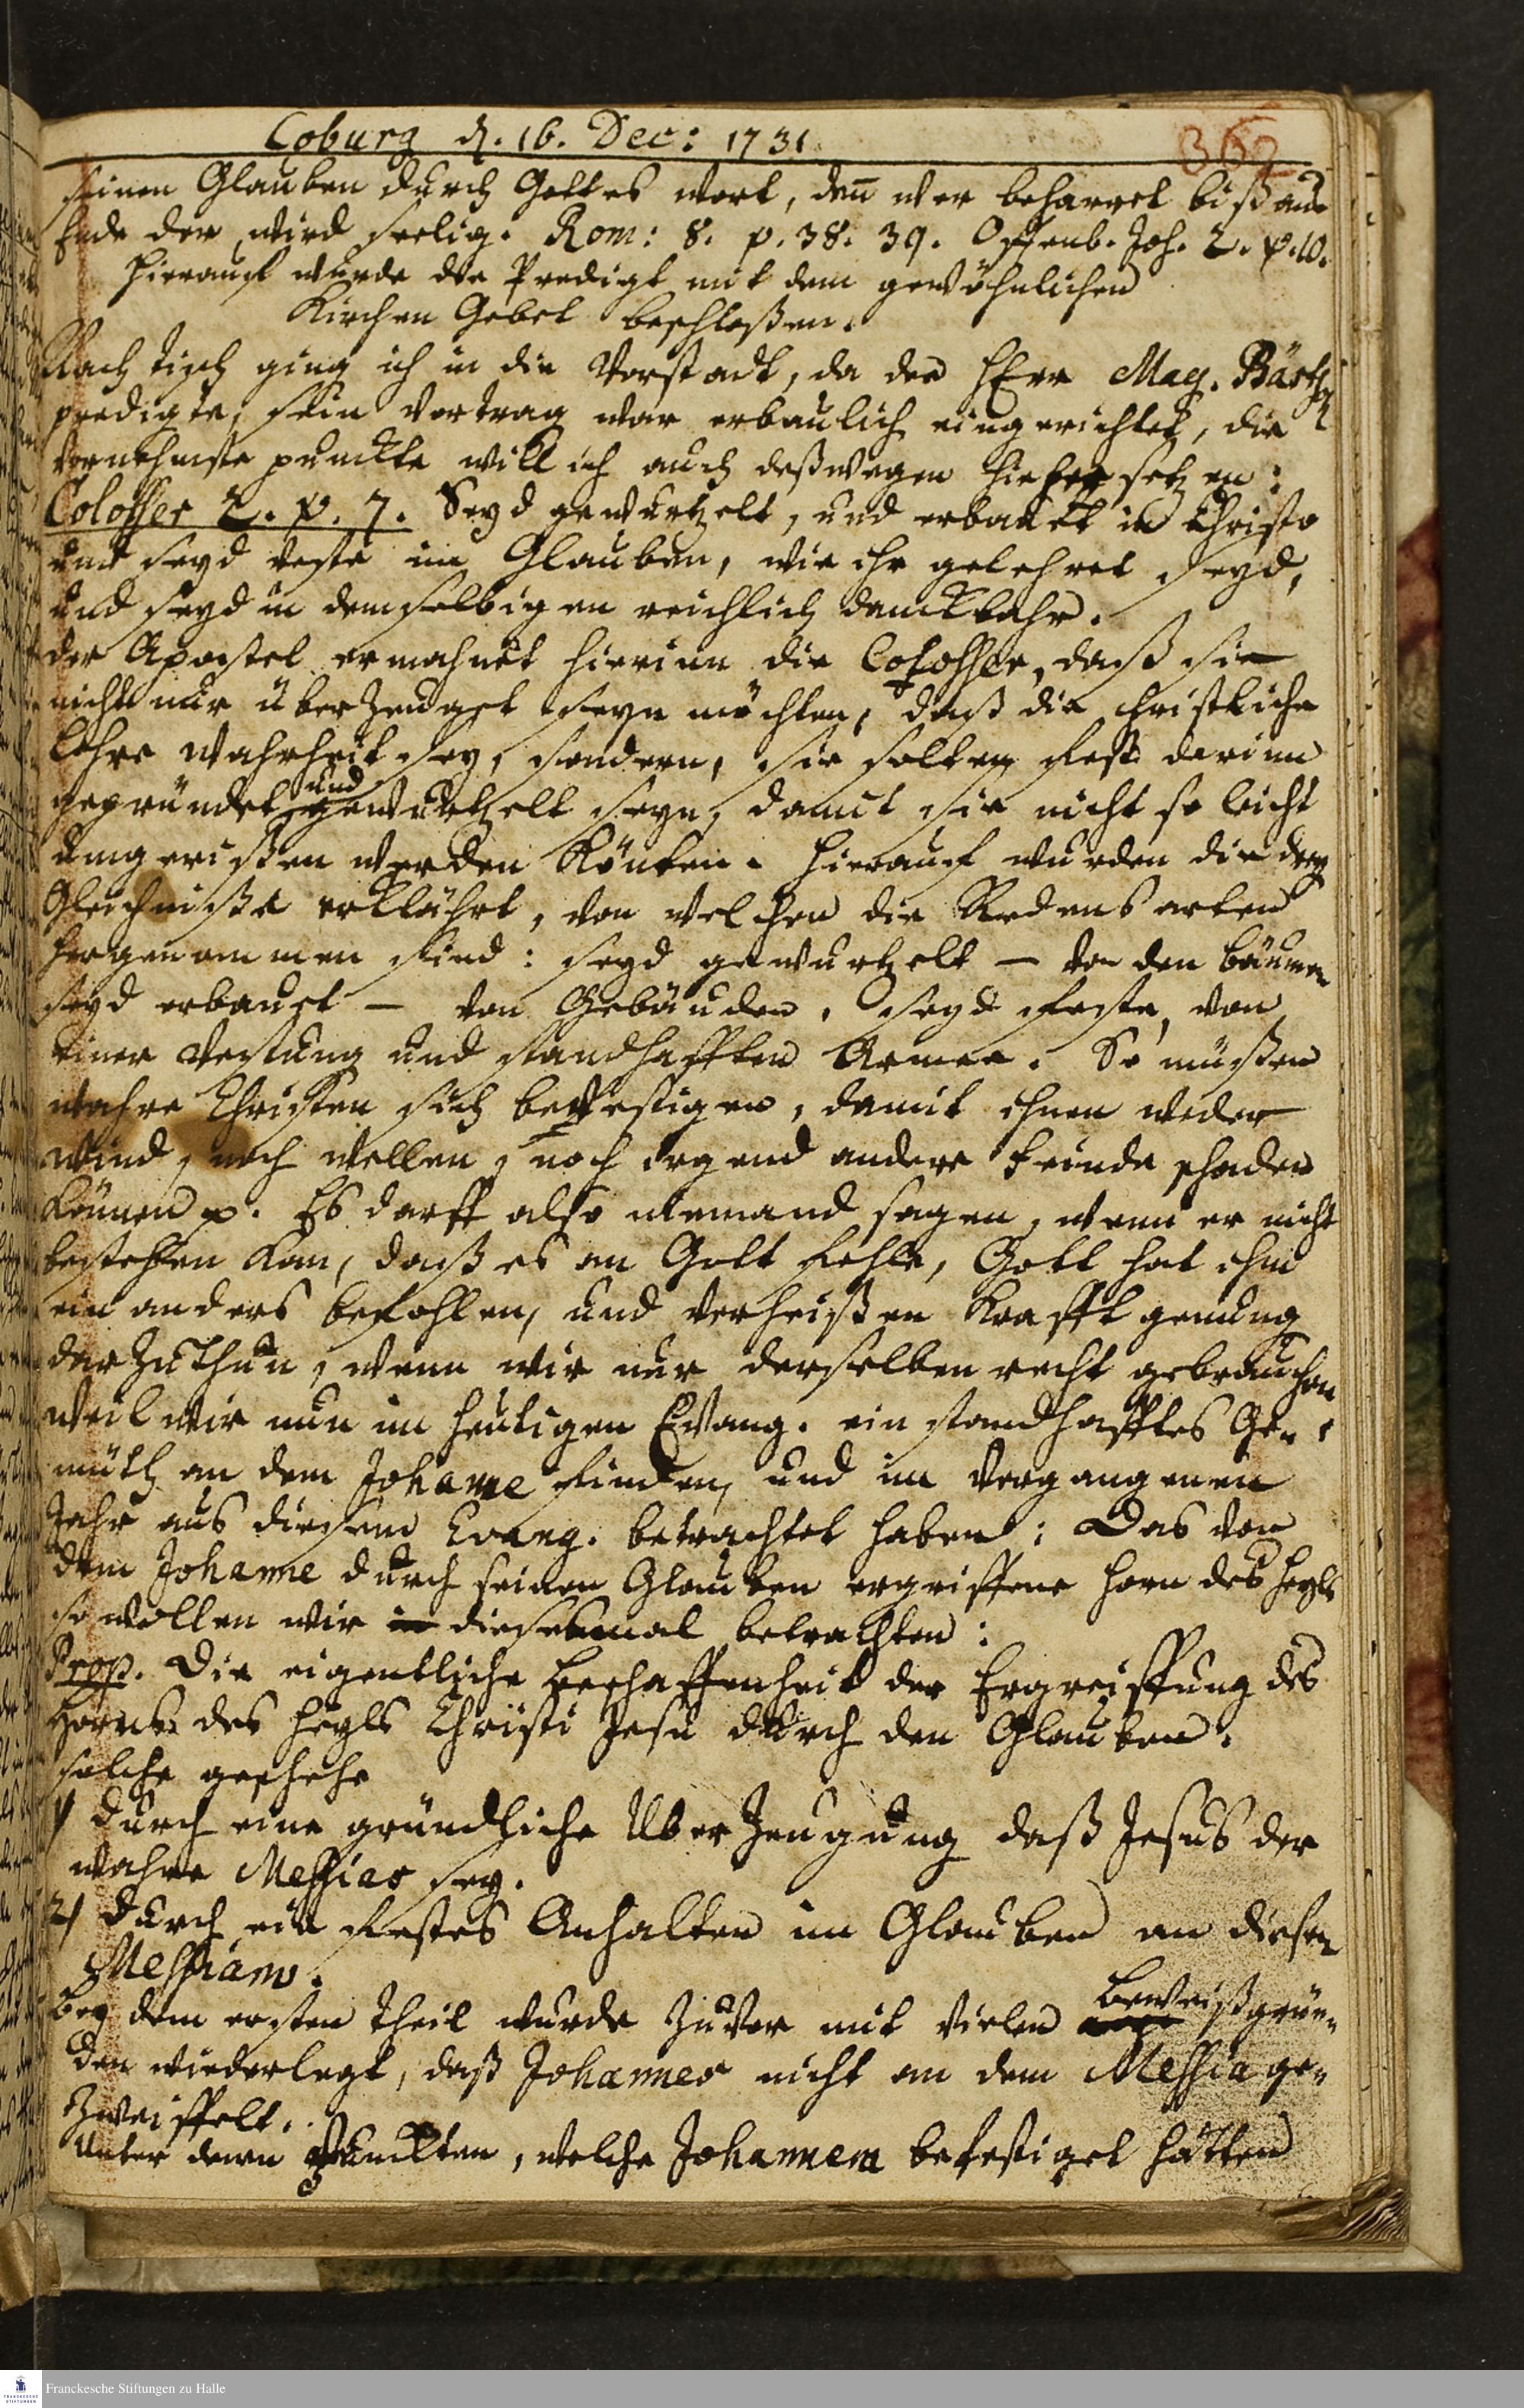 Coburg d. 16. Dec: 1731
362
seinen Glauben durch Gottes wort, deñ wer beharret biß ans
Ende der wird seelig. Rom: 8. v. 38. 39. Offenb. Joh. 2. v. 10.
Hierauf wurde die Predigt mit dem gewöhnlichen
Kirchen Gebet beschloßen.
Nach tisch ging ich in die Vorstadt, da der HErr Mag. Bärth
predigte, sein Vortrag war erbaulich eingerichtet, die
vornehmste punckte will ich auch deßwegen hieher setzen:
Colosser 2. v. 7. Seyd gewurtzelt, und erbauet in Christo
und seyd veste im Glauben, wie ihr gelehret seyd,
und seyd in demselbigen reichlich danckbahr.
der Apostel ermahnet hierinn die Colosser, daß sie
nicht nur überzeuget seyn möchten, daß die christliche
lehre wahrheit sey, sondern, sie solten fest darinn
gegründet und gewurtzelt seyn, damit sie nicht so leicht
umgerißen werden könten. Hierauf wurden die drey
Gleichniße erklährt, von welchen die Redens arten
hergenommen sind: seyd gewurtzelt – von den bäumen
seyd erbauet – von Gebäuden, seyd feste, von
einer Vestung und standhafften Armee. So müßen
wahre Christen sich bevestigen, damit ihnen weder
wind, noch wellen, noch irgend andere feinde schaden
können p. Es darff also niemand sagen, wenn er nicht
bestehen kan, daß es an Gott fehle, Gott hat ihm
ein anders befohlen, und verheißen Krafft genung
darzuthun, wenn wir nur derselben recht gebrauchen
weil wir nun im heutigen Evang. ein standhafftes Ge-
müth an dem Johanne finden, und im vergangenen
Jahr aus diesem Evang. betrachtet haben: Das von
dem Johanne durch seinen Glauben ergriffene Horn des Heyls
so wollen wir diesesmal betrachten:
Prop. Die eigentliche beschaffenheit der Ergreiffung des
Horns des Heyls Christi Jesu durch den Glauben.
solche geschehe
1) durch eine gründliche Uberzeugung daß Jesus der
wahre Messias sey.
2) durch ein festes Anhalten im Glauben an diesen
Messiam.
bey dem ersten theil wurde zuvor mit vielen beweißgrün-
den wiederlegt, daß Johannes nicht an dem Messia ge-
zweiffelt.
Unter denen Puncten, welche Johannem befestiget hätten
Franckesche Stiftungen zu Halle